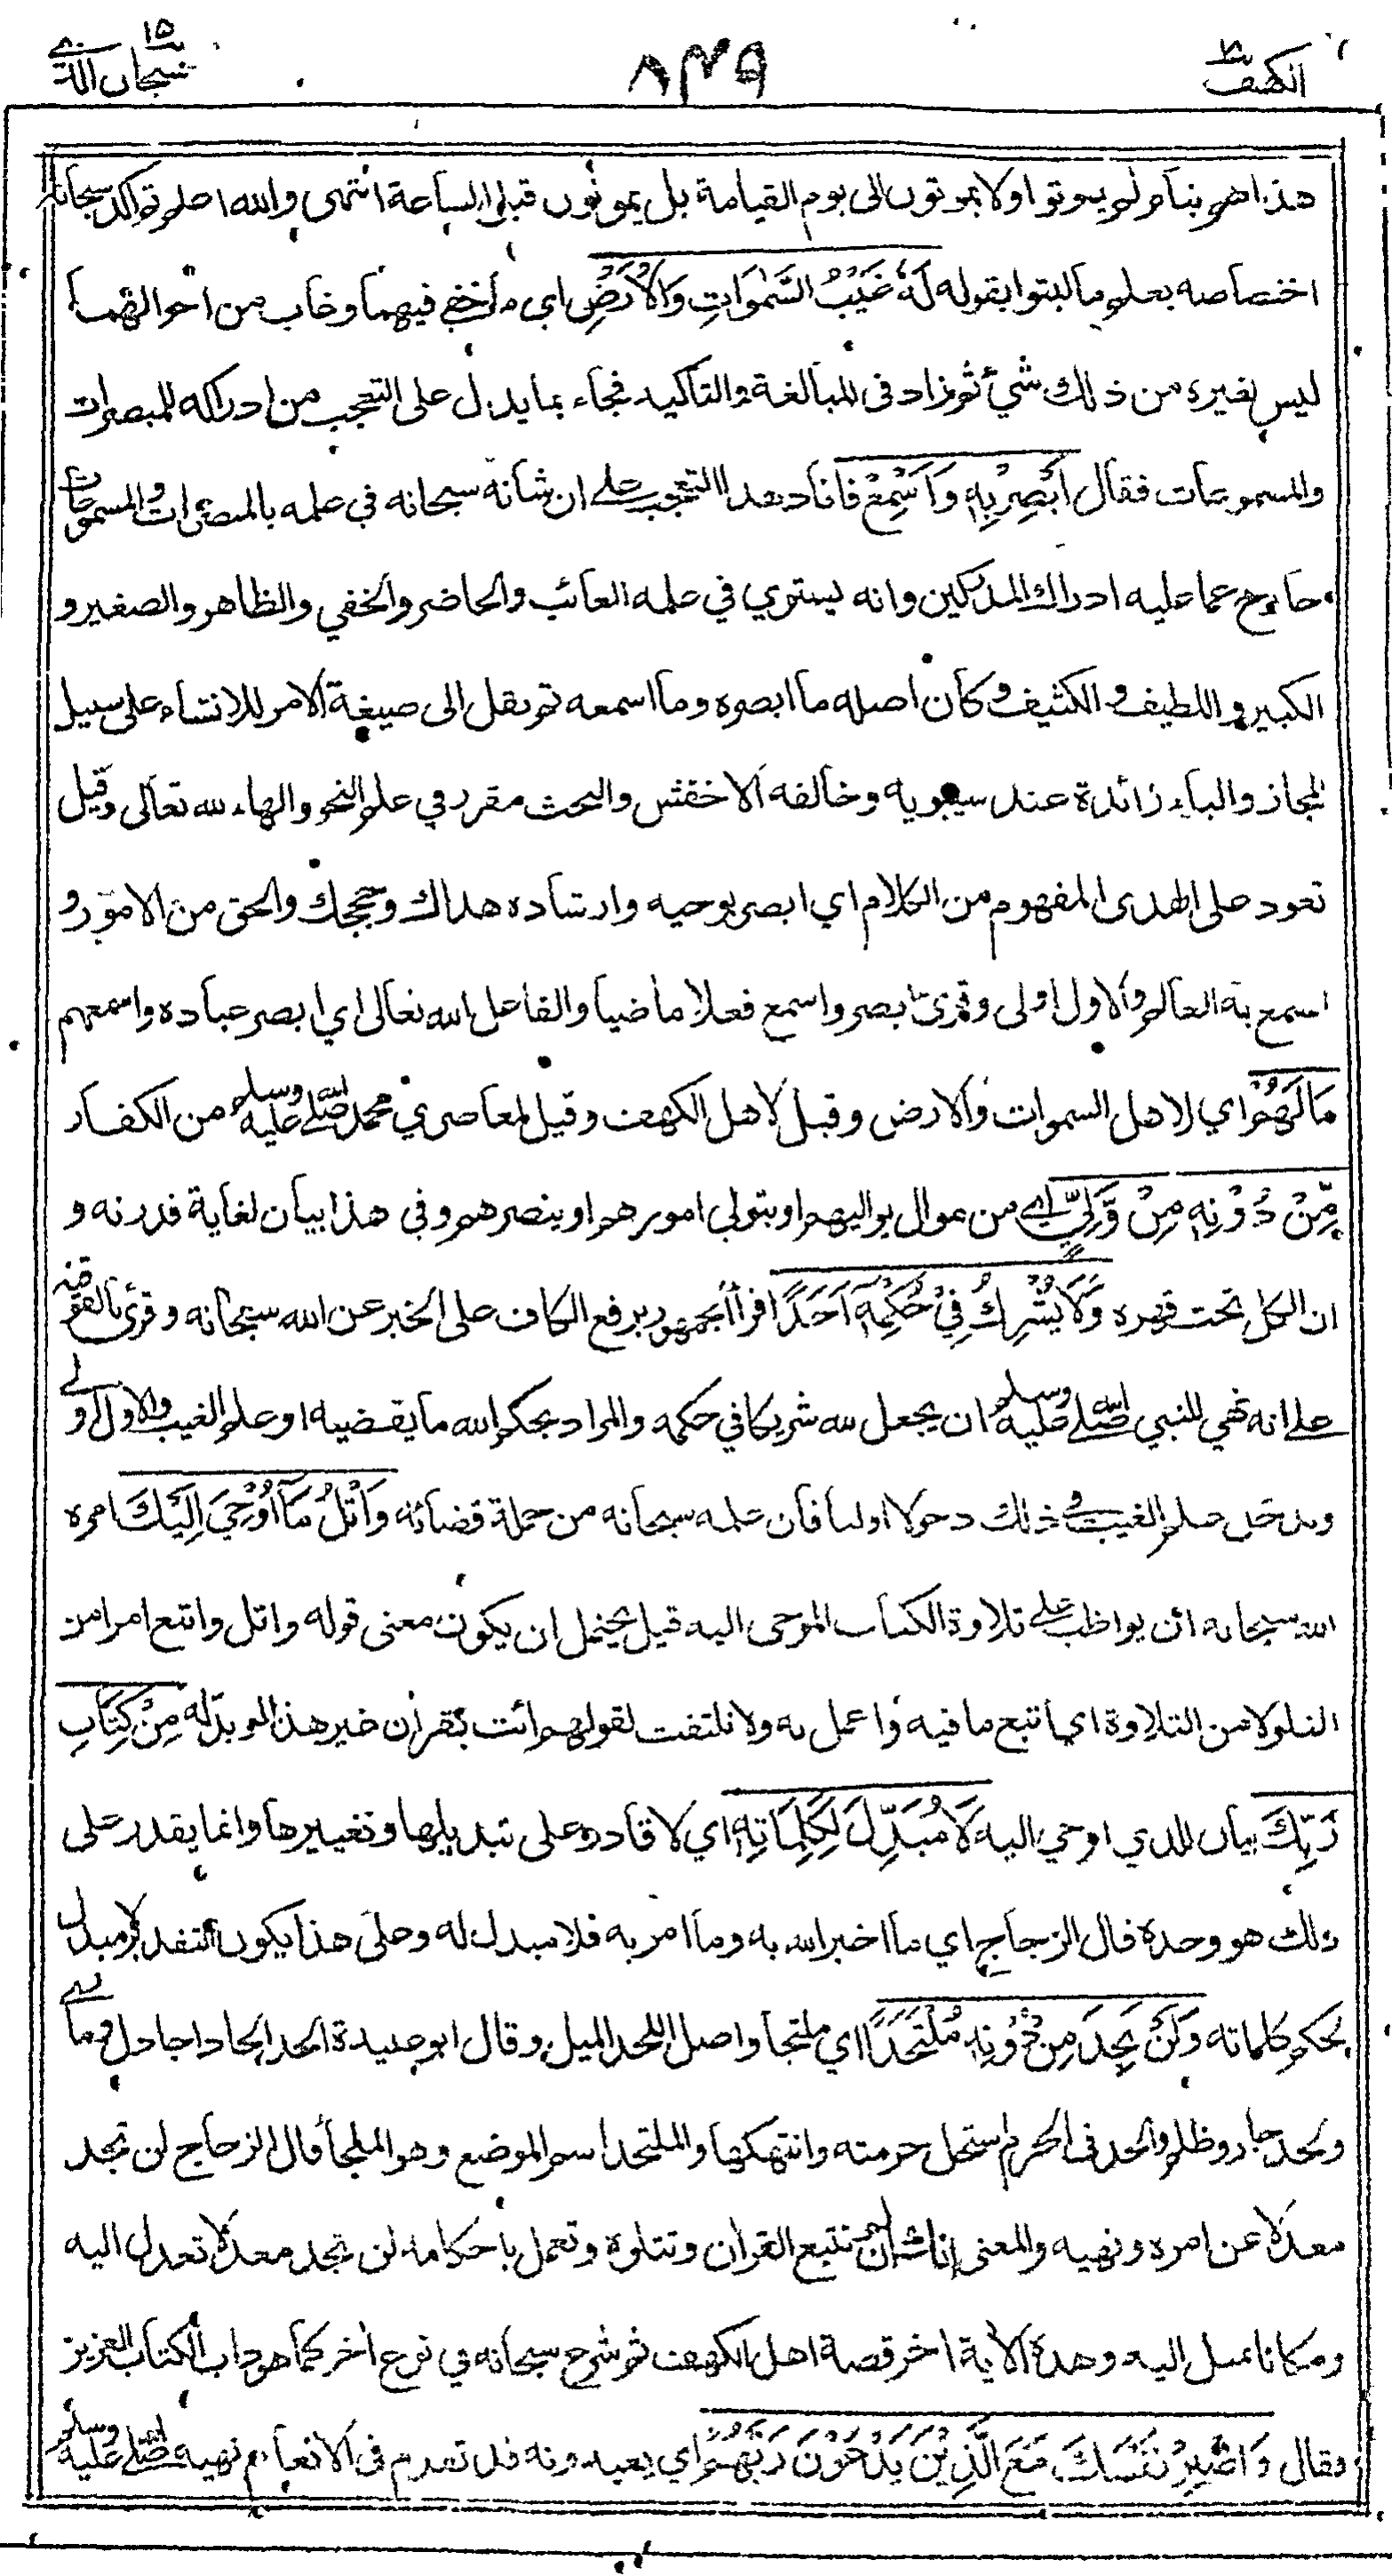 الكهف ١٨
٨٤٩
سبحان الذي ١٥
هذا هم نيام لم يموتوا ولا يموتون الى يوم القيامة بل يموتون قبل الساعة انتهى والله اعلم ثم اكد سبحانه
اختصاصه بعلم ما لبثوا بقوله لَهُ غَيْبُ السَّمٰوَاتِ وَالْاَرْضِ اي ما خفي فيهما وغاب من احوالهما
ليس لغيره من ذلك شيء ثم زاد في المبالغة والتاكيد فجاء بما يدل على التعجب من ادراكه للمبصرات
والمسموعات فقال اَبْصِرْ بِهٖ وَاَسْمِعْ فافاد هذا التعجب على ان شانه سبحانه في علمه بالمبصرات والمسموعات
خارج عما عليه ادراك المدركين وانه يستوي في علمه الغائب والحاضر والخفي والظاهر والصغير و
الكبير واللطيف والكثيف وكان اصله ما ابصره وما اسمعه ثم نقل الى صيغة الامر للانشاء على سبيل
المجاز والباء زائدة عند سيبويه وخالفه الاخفش والبحث مقرر في علم النحو والهاء لله تعالى وقيل
تعود على الهدى المفهوم من الكلام اي ابصر بوحيه وارشاده هداك وحججك والحق من الامور و
اسمع به العالم والاول اولى وقرئ ابصر واسمع فعلا ماضيا والفاعل الله تعالى اي ابصر عباده واسمعهم
مَا لَهُمْ اي لاهل السموات والارض وقيل لاهل الكهف وقيل لمعاصري محمد صلى الله عليه وسلم من الكفار
مِّنْ دُوْنِهٖ مِنْ وَّلِيٍّ اي من موال يواليهم او يتولى امورهم او ينصرهم وفي هذا بيان لغاية قدرته و
ان الكل تحت قهره وَّلَا يُشْرِكُ فِيْ حُكْمِهٖ اَحَدًا قرأ الجمهور برفع الكاف على الخبر عن الله سبحانه وقرئ بالفوقية
على انه نهي للنبي صلى الله عليه وسلم ان يجعل لله شريكا في حكمه والمراد بحكم الله ما يقضيه او علم الغيب والاول اولى
ويدخل علم الغيب في ذلك دخولا اوليا فان علمه سبحانه من جملة قضائه وَاتْلُ مَا اُوْحِيَ اِلَيْكَ امره
الله سبحانه ان يواظب على تلاوة الكتاب الموحى اليه قيل يحتمل ان يكون معنى قوله واتل واتبع امرا من
التلو لا من التلاوة اي اتبع ما فيه واعمل به ولا تلتفت لقولهم ائت بقران غير هذا او بدله مِنْ كِتَابِ
رَبِّكَ بيان للذي اوحي اليه لَا مُبَدِّلَ لِكَلِمَاتِهٖ اي لا قادر على تبديلها وتغييرها وانما يقدر على
ذلك هو وحده قال الزجاج اي ما اخبر الله به وما امر به فلا مبدل له وعلى هذا يكون التقدير لا مبدل
لحكم كلماته وَلَنْ تَجِدَ مِنْ دُوْنِهٖ مُلْتَحَدًا اي ملتجأ واصل اللحد الميل وقال ابو عبيدة الحد الحادا جادل ومارى
ولحد جار وظلم والحد في الحرم استحل حرمته وانتهكها والملتحد اسم الموضع وهو الملجأ قال الزجاج لن تجد
معدلا عن امره ونهيه والمعنى انك ان لم تتبع القران وتتلوه وتعمل باحكامه لن تجد معدلا تعدل اليه
ومكانا تميل اليه وهذه الآية اخر قصة اهل الكهف ثم شرع سبحانه في نوع اخر كما هو داب الكتاب العزيز
فقال وَاصْبِرْ نَفْسَكَ مَعَ الَّذِيْنَ يَدْعُوْنَ رَبَّهُمْ اي يعبدونه قد تقدم في الانعام نهيه صلى الله عليه وسلم